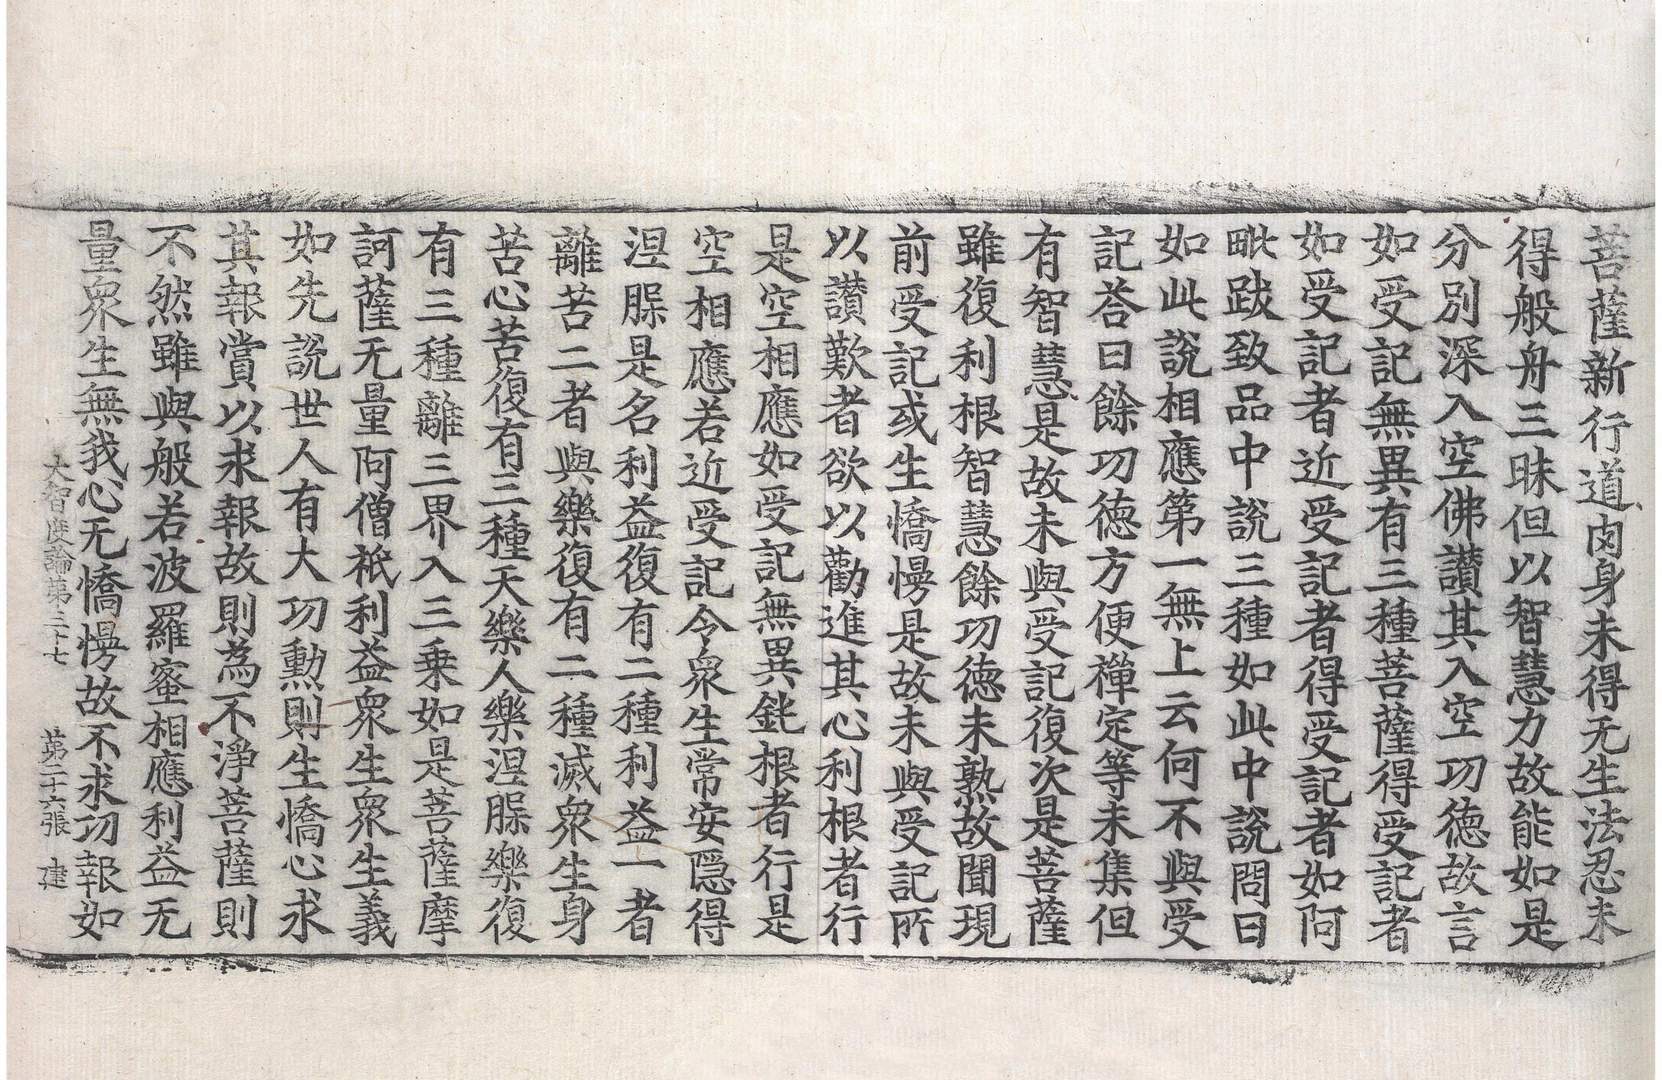 菩薩新行道肉身未得无生法忍未
得般舟三昧但以智慧力故能如是
分別深入空佛讃其入空功德故言
如受記無異有三種菩薩得受記者
如受記者近受記者得受記者如阿
毗跋致品中說三種如此中說問曰
如此說相應第一無上云何不與受
記荅曰餘功德方便禪定等未集但
有智慧是故未與受記復次是菩薩
雖復利根智慧餘功德未熟故聞現
前受記或生憍慢是故未與受記所
以讃歎者欲以勸進其心利根者行
是空相應如受記無異鈍根者行是
空相應若近受記令衆生常安隱得
涅槃是名利益復有二種利益一者
離苦二者與樂復有二種滅衆生身
苦心苦復有三種天樂人樂涅槃樂復
有三種離三界入三乗如是菩薩摩
訶薩无量阿僧祇利益衆生衆生義
如先說世人有大功勲則生憍心求
其報賞以求報故則爲不淨菩薩則
不然雖與般若波羅蜜相應利益无
量衆生無我心无憍慢故不求功報如
大智度論第三十七 第二十六張 建